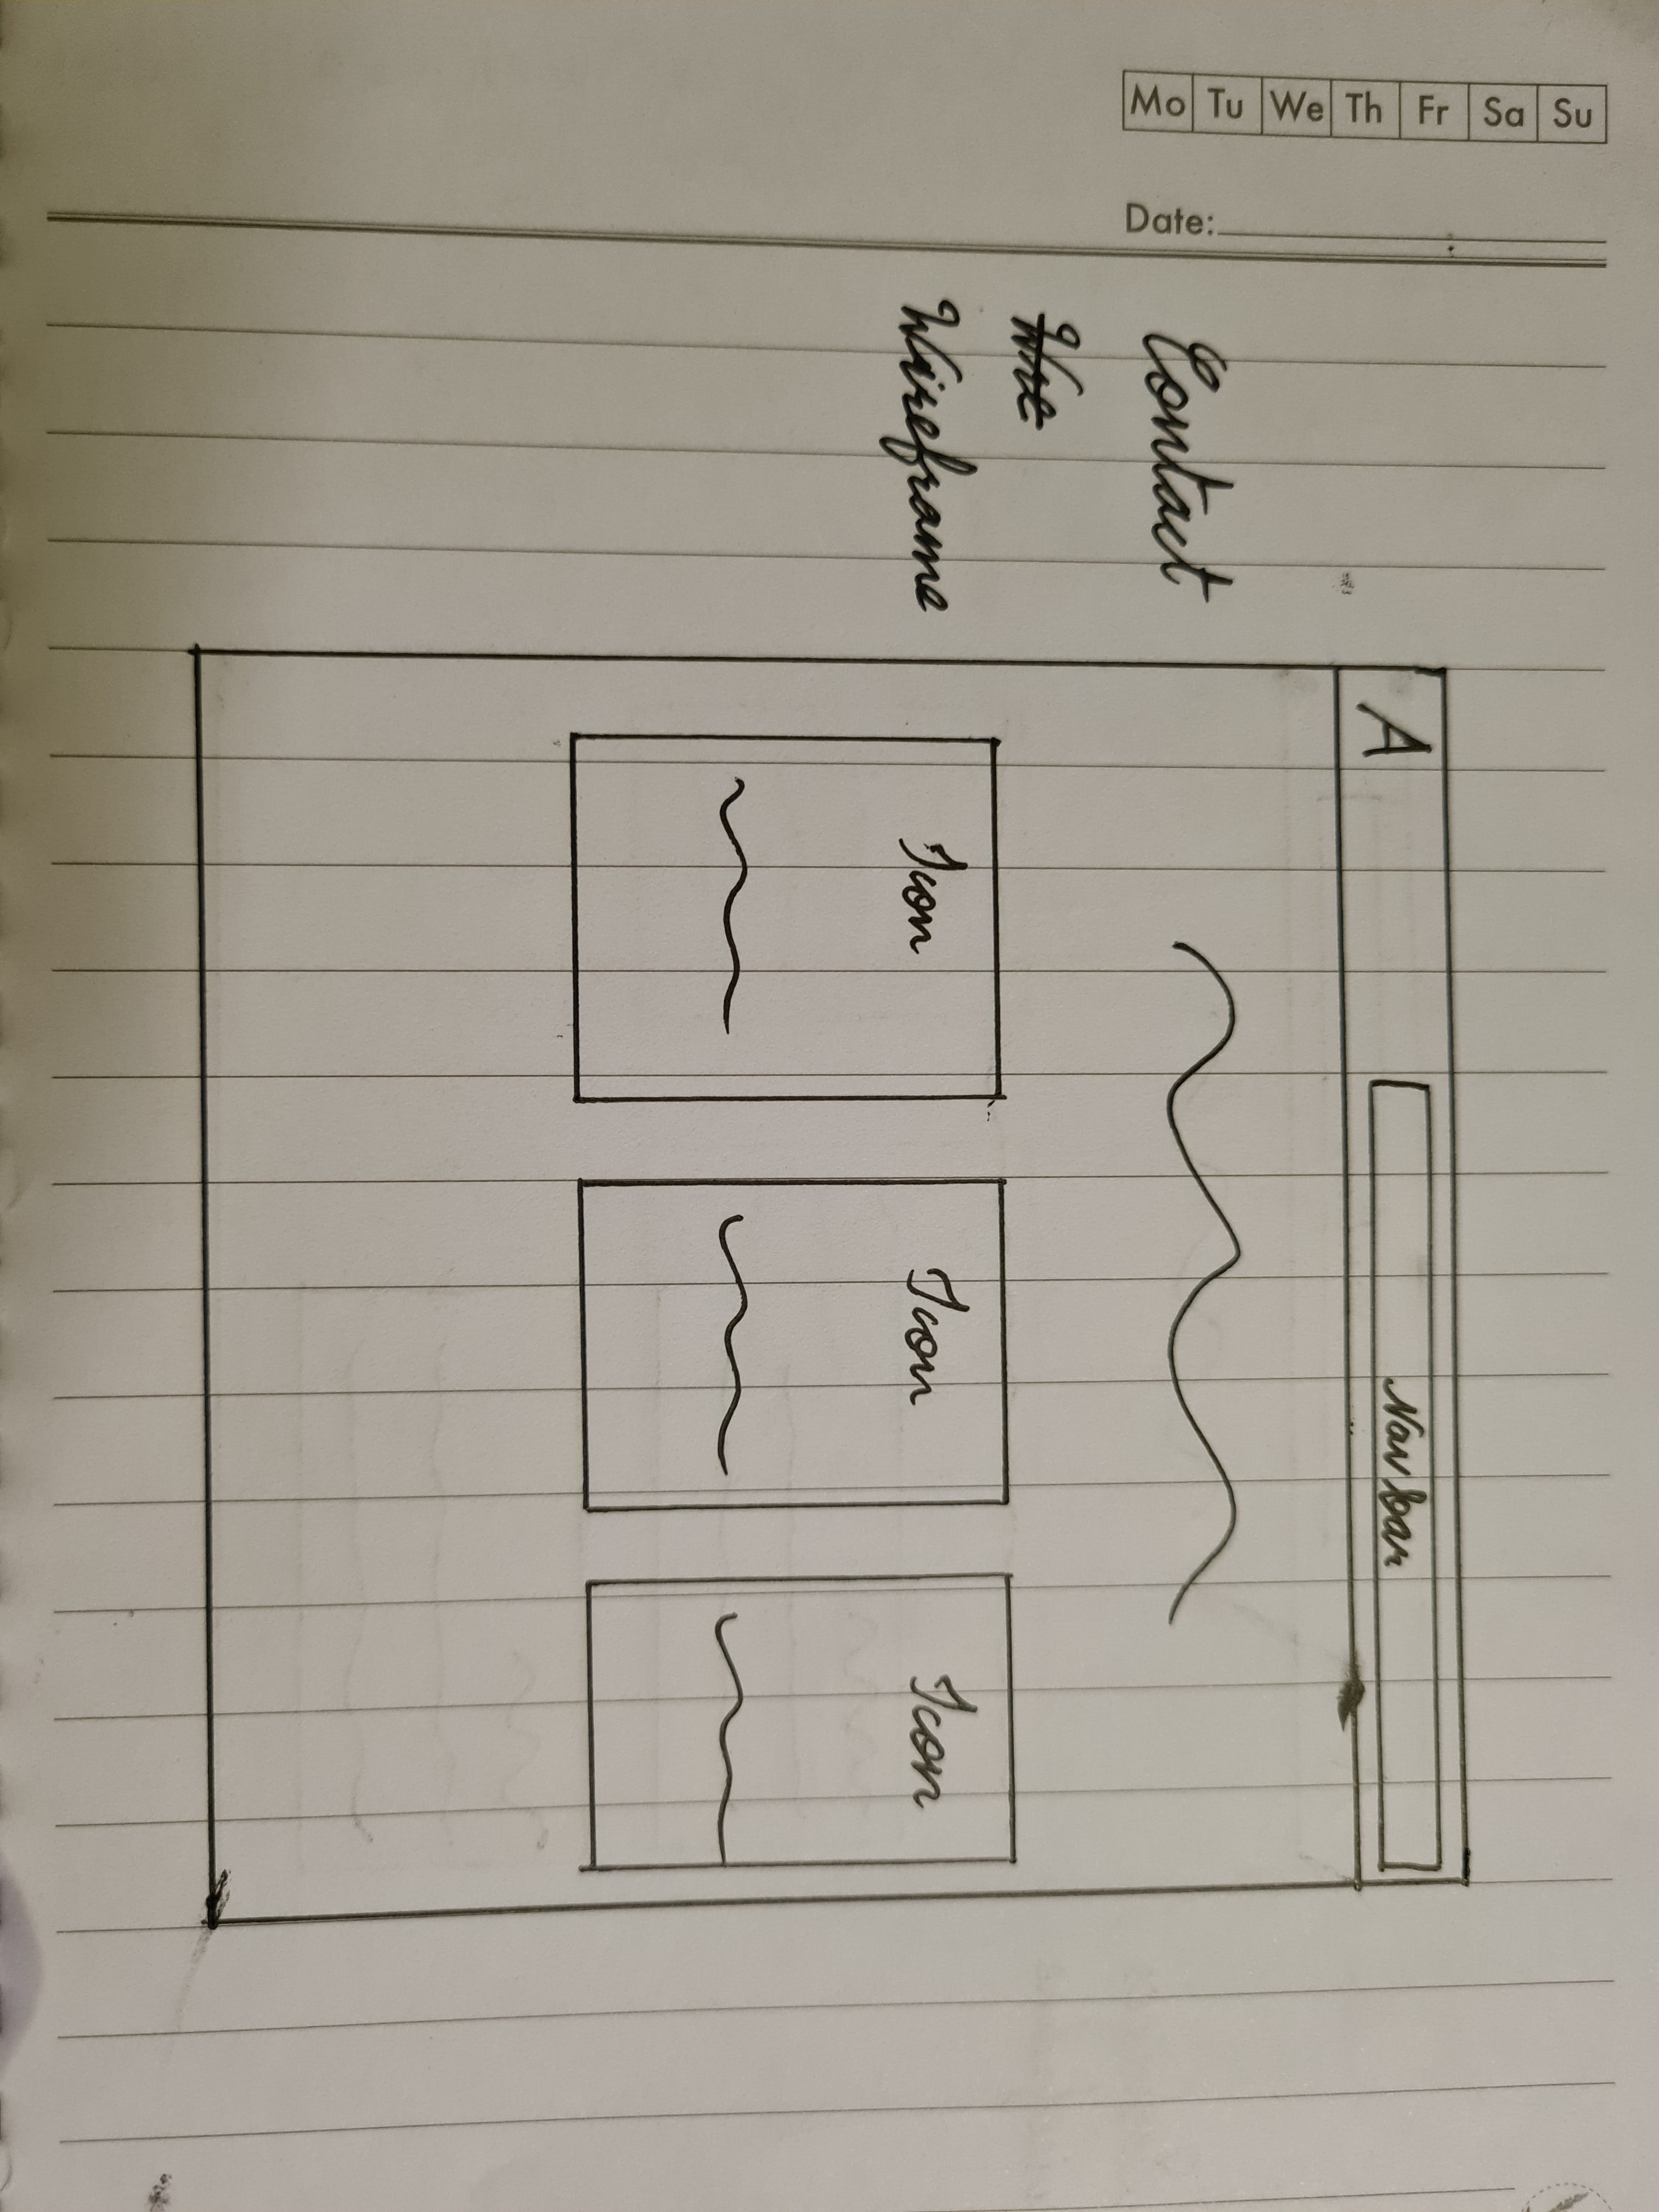 Mo Tu We Th Fr Sa Su
Date:
Contact
Wireframe
A
Navbar
Icon Icon Icon